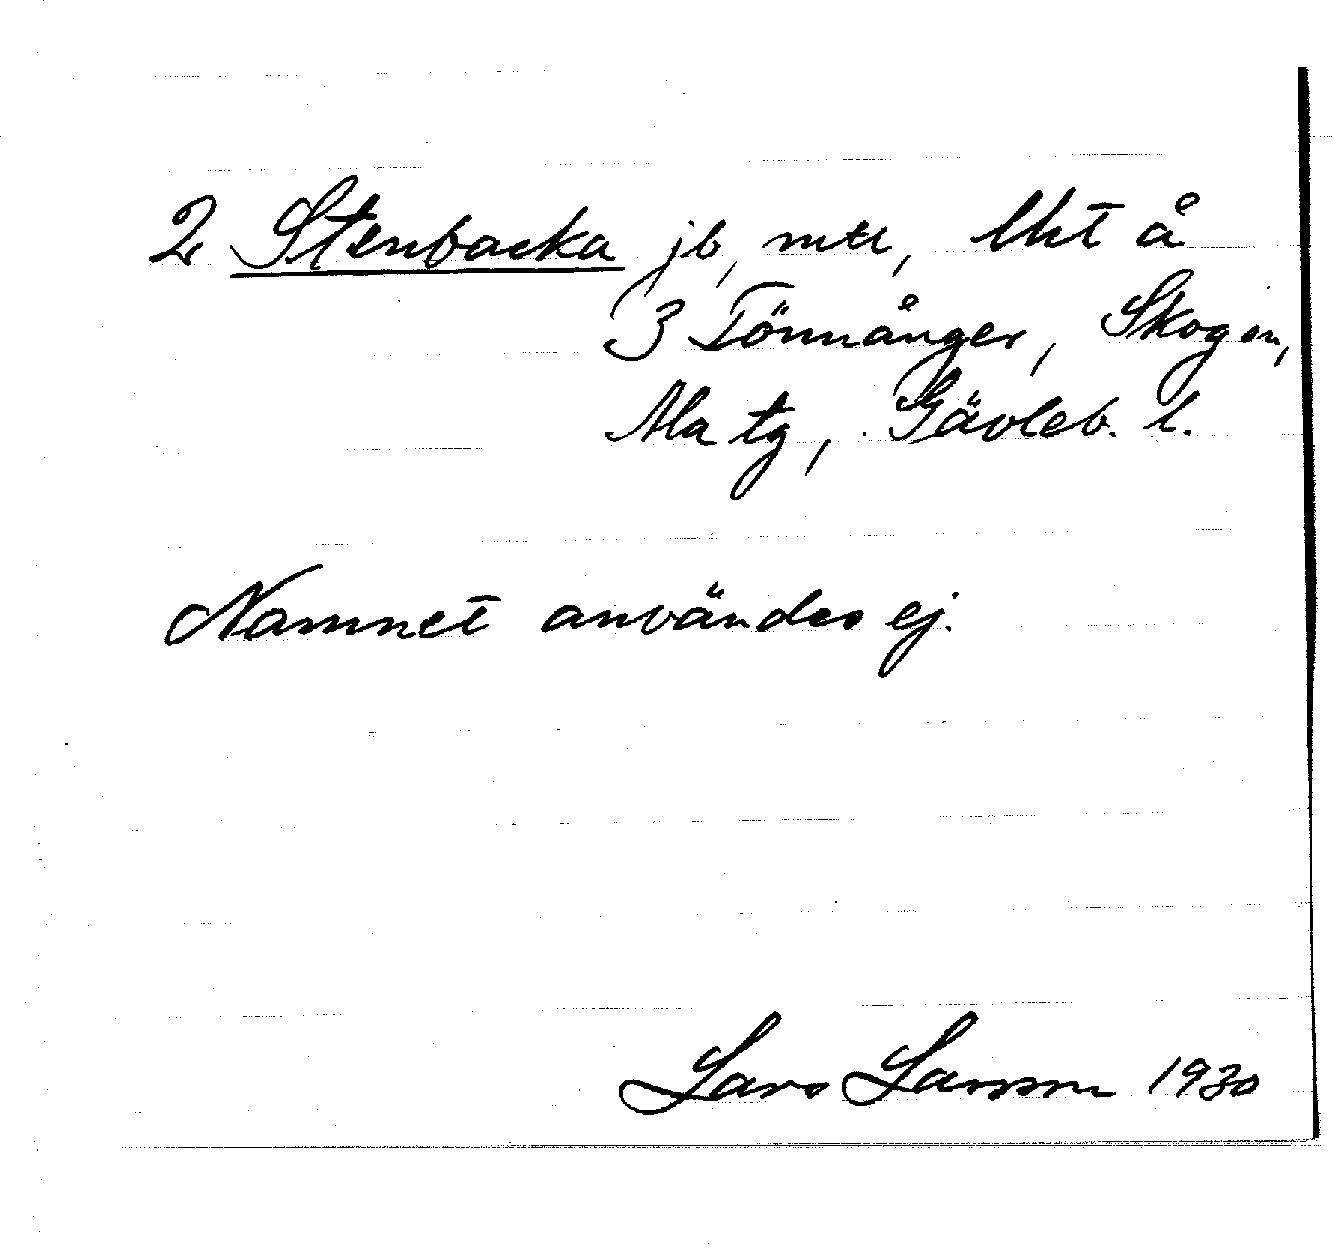 2 Stenbacka jb, mtl, lht å
3 Tönnånger, Skogen,
Ala tg, Gävleb. l.
Namnet användes ej.
Lars Larsson 1930